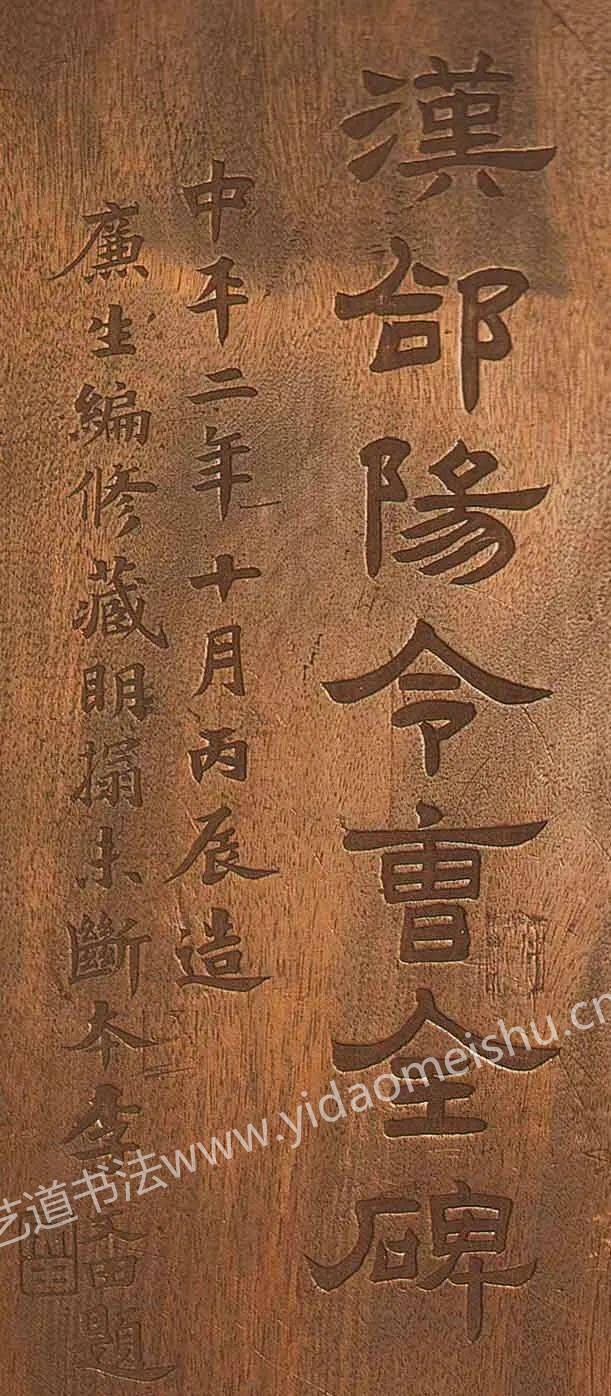 漢郃陽令曹全碑
中平二年十月丙辰造
廉生編修藏明搨未斷本李文田題
艺道书法www.yidaomeishu.cn